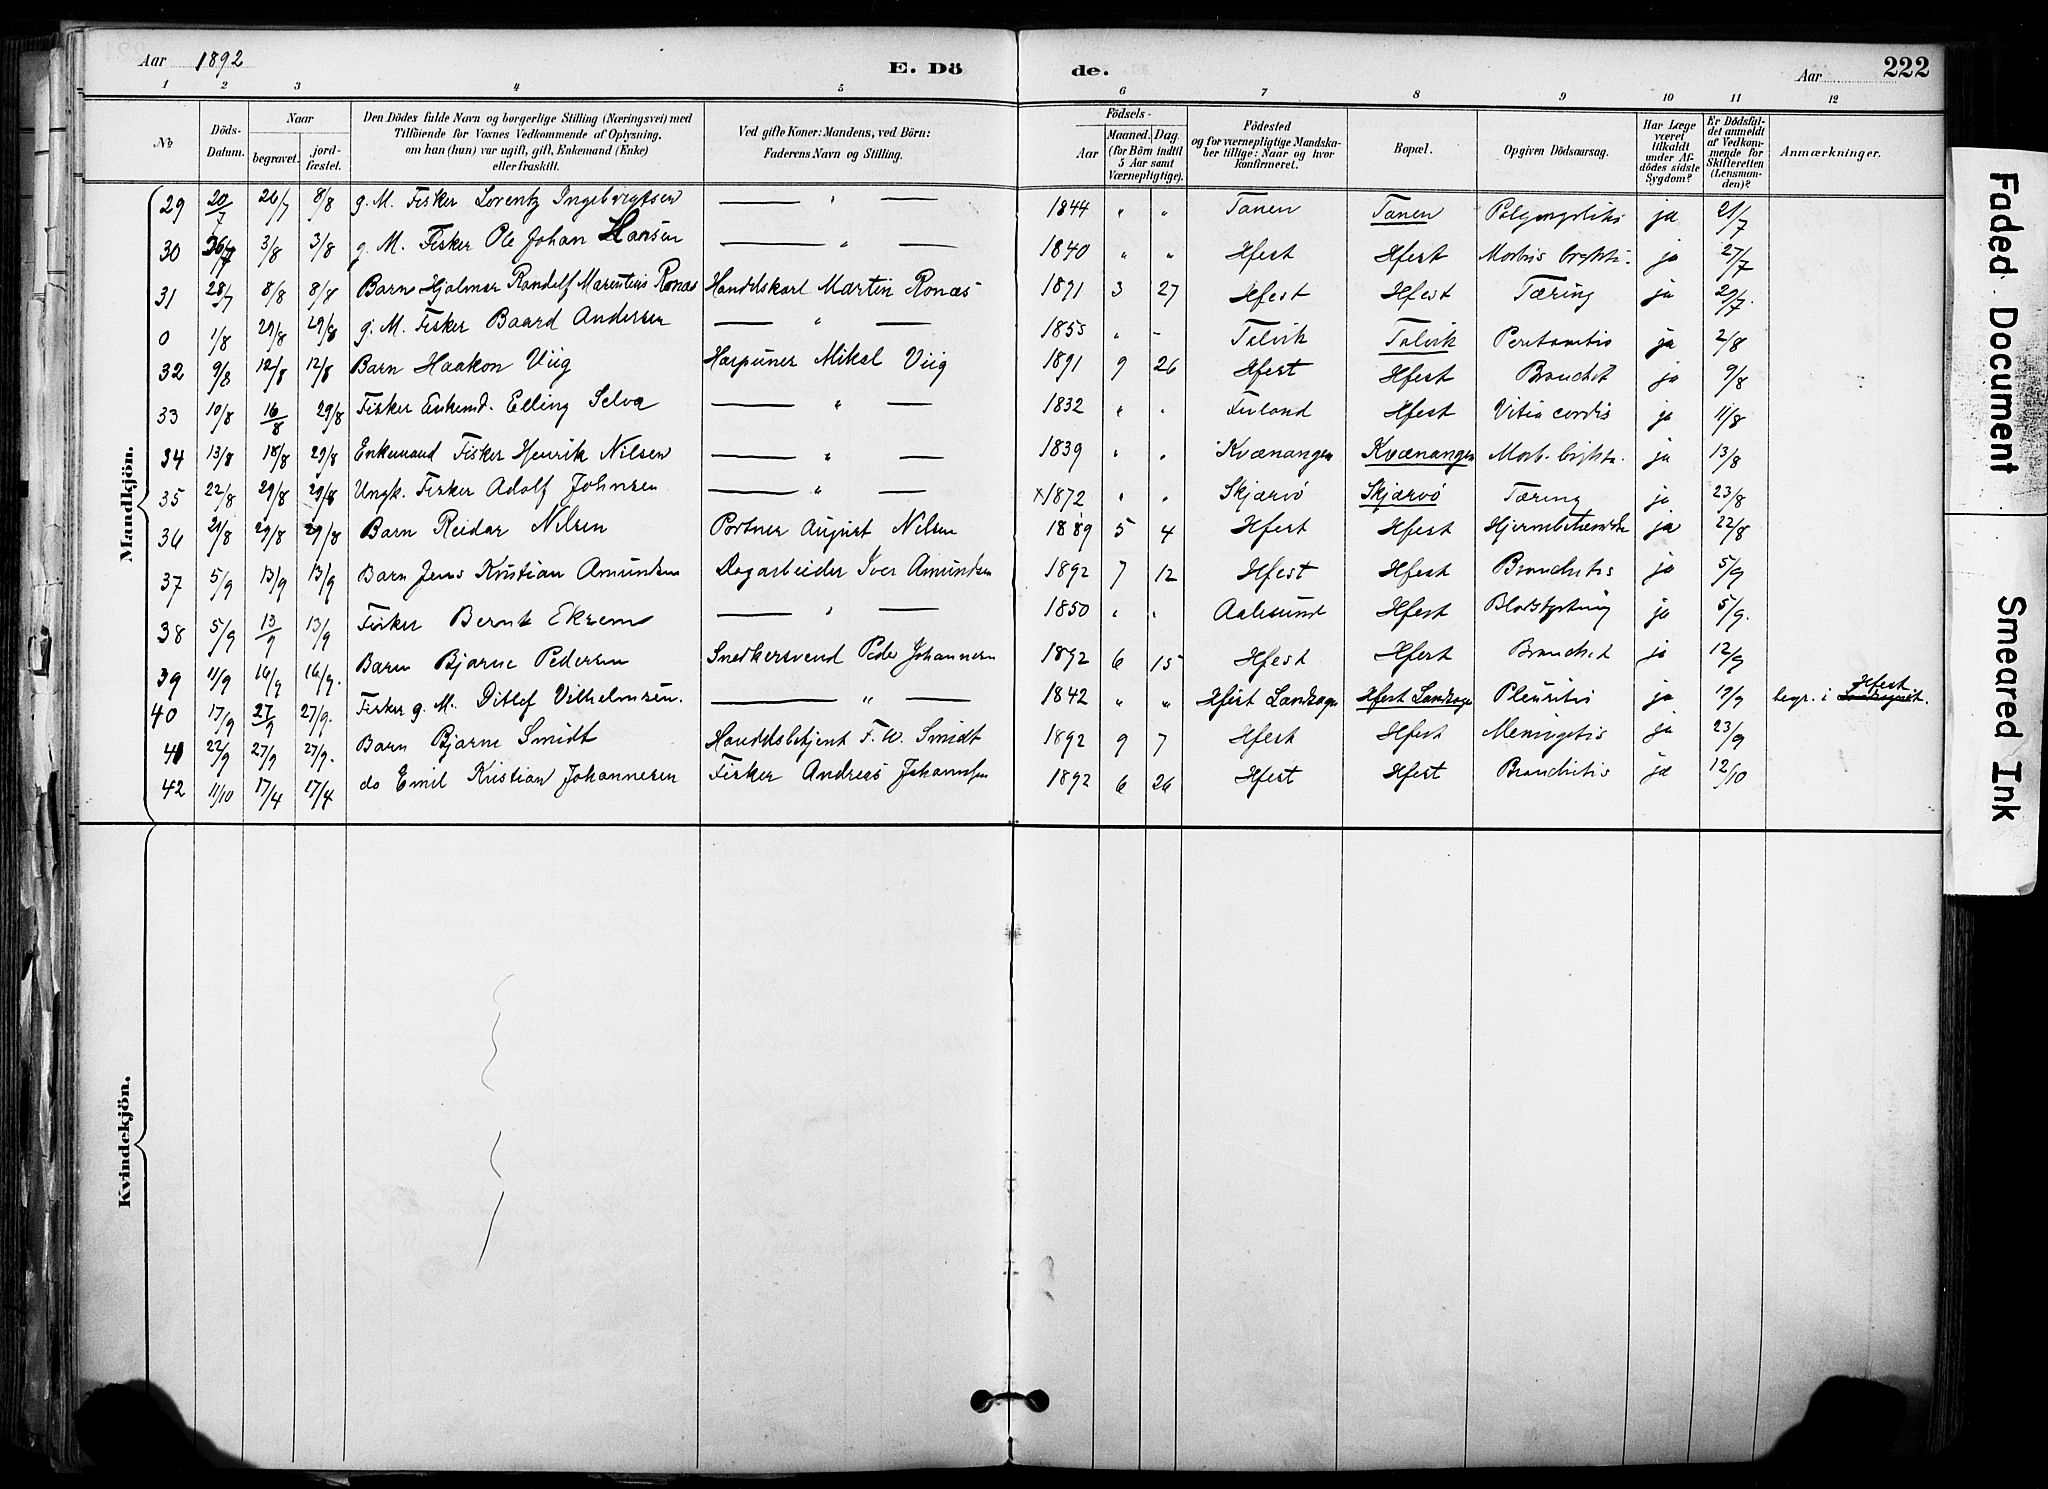 Aar 1892 E. Dö de. Aar 222
1 2 3 4 5 6 7 8 9 10 11 12
No Döds-Datum. Naar begravet. jordfæstet. Den Dödes fulde Navn og borgerlige Stilling (Næringsvei) med Tilföiende for Voxnes Vedkommende af Oplysning, om han (hun) var ugift, gift, Enkemand (Enke) eller fraskilt. Ved gifte Koner: Mandens, ved Börn: Faderens Navn og Stilling. Födsels- Aar Maaned. Dag. (for Börn indtil 5 Aar samt Værnepligtige). Födested og for værnepligtige Mandskaber tillige: Naar og hvor konfirmeret. Bopæl. Opgiven Dödsaarsag. Har Læge været tilkaldt under Afdödes sidste Sygdom? Er Dödsfaldet anmeldt af Vedkommende for Skifteretten (Lensmanden)? Anmærkninger.
Mandkjön.
29 20/7 26/7 8/8 g. M. Fisker Lorentz Ingebrigtsen — " — 1844 " " Tanen Tanen ja 21/7
30 26/7 3/8 3/8 g. M. Fisker Ole Johan Hansen — " — 1840 " " Hfest Hfest Morbus brightii ja 27/7
31 28/7 8/8 8/8 Barn Hjalmar Randolf Marentius Ronæs Handelskarl Martin Ronæs 1891 3 27 Hfest Hfest Tæring ja 29/7.
0 1/8 29/8 29/8 g. M. Fisker Baard Andersen — " — 1855 " - Talvik Talvik ja 2/8
32 9/8 12/8 12/8 Barn Haakon Viig Harpuner Mikal Viig 1891 9 26 Hfest Hfest Bronchit ja 9/8
33 10/8 16/8 29/8 Fisker Enkemd. Elling Selva — " — 1832 " " Finland Hfest Vitia cordis ja 11/8
34 13/8 18/8 29/8 Enkemand Fisker Henrik Nilsen — " — 1839 " " Kvænangen Kvænangen Morb. brightii. ja 13/8
35 22/8 29/8 29/8 Ungk. Fisker Adolf Johnsen — " — x1872 " " Skjærvö Skjærvö Tæring ja 23/8
36 21/8 29/8 29/8 Barn Reidar Nilsen Portner August Nilsen 1889 5 4 Hfest Hfest ja 22/8
37 5/9 13/9 13/9 Barn Jens Kristian Amundsen Dagarbeider Iver Amundsen 1892 7 12 Hfest Hfest Bronchitis ja 5/9
38 5/9 13/9 13/9 Fisker Bernt Ekrem — " — 1850 " " Aalesund Hfest Blodstyrtning ja 5/9.
39 11/9 16/9 16/9. Barn Bjarne Pedersen Snedkersvend Peder Johannesen 1892 6 15 Hfest Hfest Bronchit ja 12/9
40 17/9 27/9 27/9. Fisker g. M. Ditlef Vilhelmsen. — " — 1842 " " Hfest Landsogn Hfest Landsogn Pleuritis ja 19/9 begr. i Hfest Landsognet.
41 22/9 27/9 27/9. Barn Bjarne Smidt Handelsbetjent F. W. Smidt 1892 9 7 Hfest Hfest Meningitis ja 23/9
42 11/10 17/4 17/4 do Emil Kristian Johannesen Fisker Andreas Johannesen 1892 6 26 Hfest Hfest Bronchitis ja 12/10
Kvindekjön.
Faded Document
Smeared Ink